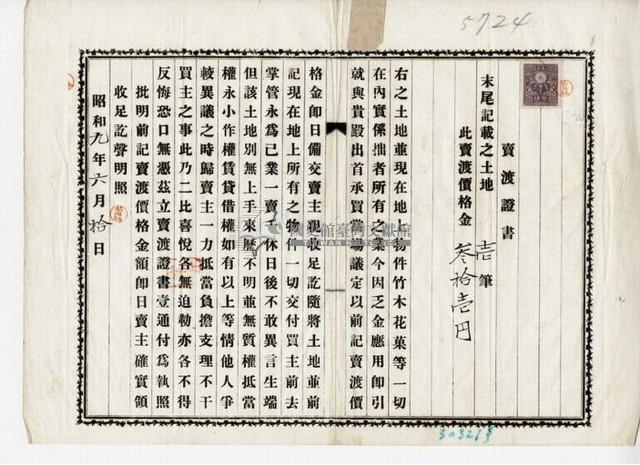 5724
賣渡證書
末尾記載之土地 壱筆
此賣渡價格金 叁拾壱円
右之土地並現在地上物件竹木花菓等一切
在內實係拙者所有之業今因乏金應用卽引
就與貴殿出首承買當場議定以前記賣渡價
格金卽日備交賣主親收足訖隨將土地並前
記現在地上所有之物件一切交付買主前去
掌管永爲己業一賣千休日後不敢異言生端
但該土地別無上手來歷不明並無質權抵當
權永小作權賃貸借權如有以上等情他人爭
較異議之時歸賣主一力抵當負擔支理不干
買主之事此乃二比喜悅各無迫勒亦各不得
反悔恐口無憑茲立賣渡證書壹通付爲執照
批明前記賣渡價格金額卽日賣主確實領
收足訖聲明照
昭和九年六月拾日
國史館臺灣文獻館